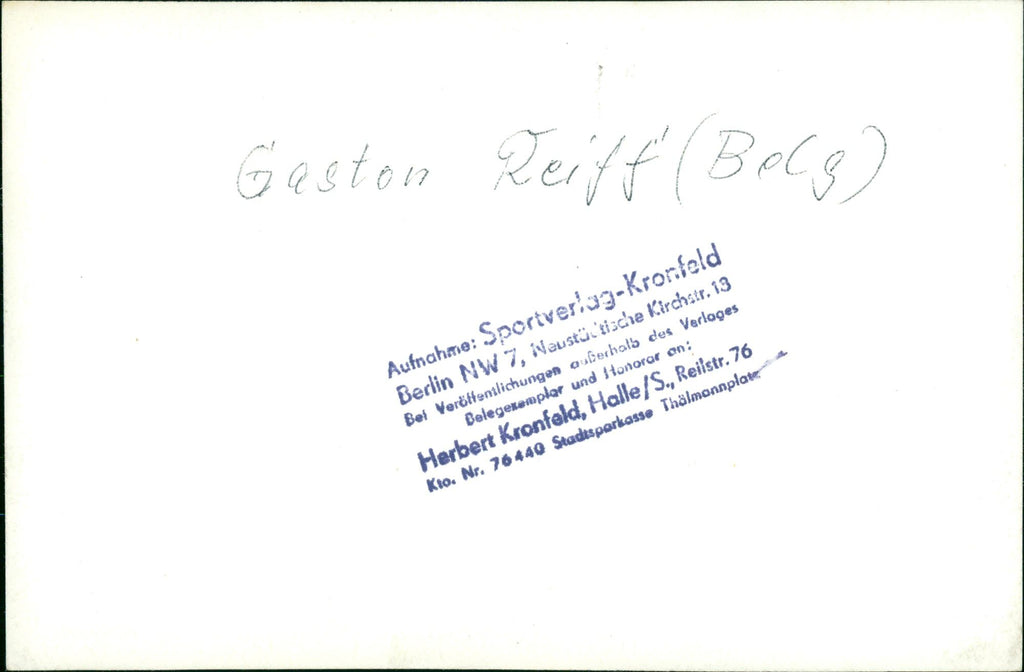 Gaston Reiff (Belg)
Aufnahme: Sportverlag-Kronfeld
Berlin NW 7, Neustädtische Kirchstr. 13
Bei Veröffentlichungen außerhalb des Verlages
Belegexemplar und Honorar an:
Herbert Kronfeld, Halle/S., Reilstr. 76
Kto. Nr. 76440 Stadtsparkasse Thälmannplatz